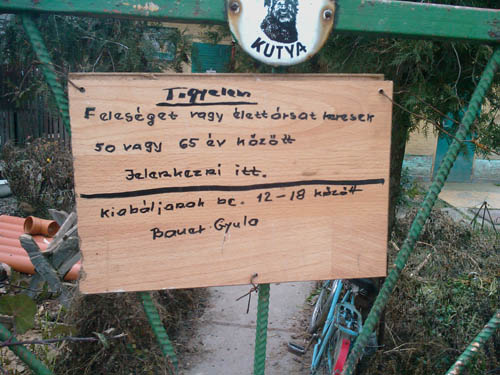 KUTYA
Figyelem
Feleséget vagy élettársat keresek
50 vagy 65 év között
Jelenkezni itt.
kiabáljanak be. 12-18 között
Bauer Gyula